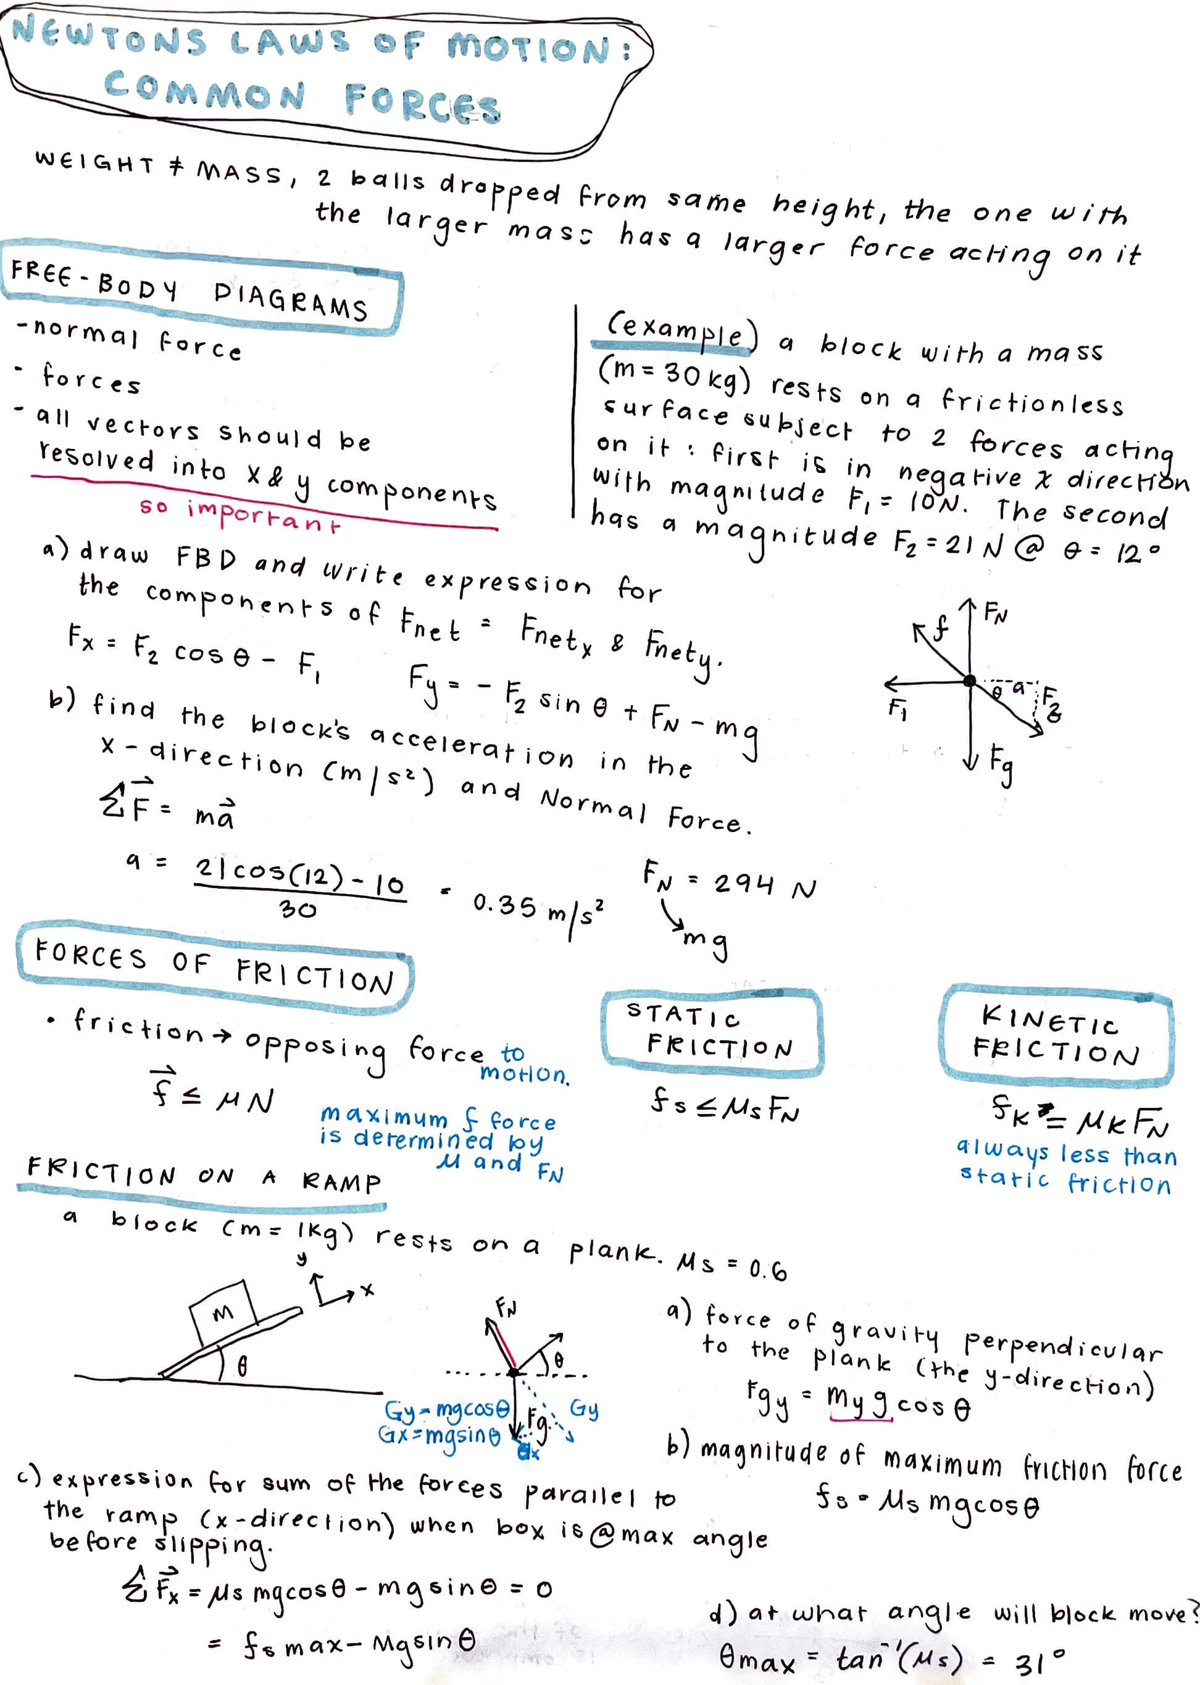 NEWTONS LAWS OF MOTION:
COMMON FORCES
WEIGHT ≠ MASS, 2 balls dropped from same height, the one with
the larger mass has a larger force acting on it
FREE-BODY DIAGRAMS
-normal force
- forces
- all vectors should be
resolved into x & y components
so important
(example) a block with a mass
(m = 30 kg) rests on a frictionless
surface subject to 2 forces acting
on it : first is in negative x direction
with magnitude F₁ = 10N. The second
has a magnitude F₂ = 21 N @ θ = 12°
a) draw FBD and write expression for
the components of Fnet = Fnetx & Fnety.
Fx = F₂ cos θ - F₁
Fy = - F₂ sin θ + FN - mg
FN
f
F₁
θ
a
F₂
Fg
b) find the block's acceleration in the
x-direction (m/s²) and Normal Force.
ΣF⃗ = ma⃗
a = 21cos(12) - 10
30
= 0.35 m/s²
FN = 294 N
mg
FORCES OF FRICTION
• friction → opposing force to
motion.
f⃗ ≤ μN
maximum f force
is determined by
μ and FN
STATIC
FRICTION
fs ≤ μs FN
KINETIC
FRICTION
fK = μK FN
always less than
static friction
FRICTION ON A RAMP
a block (m = 1kg) rests on a plank. μs = 0.6
y
x
M
θ
FN
θ
Gy = mgcosθ
Gx = mgsinθ
Fg
Gy
Gx
a) force of gravity perpendicular
to the plank (the y-direction)
Fgy = myg cos θ
b) magnitude of maximum friction force
fs = μs mgcosθ
c) expression for sum of the forces parallel to
the ramp (x-direction) when box is @ max angle
before slipping.
ΣF⃗x = μs mgcosθ - mgsinθ = 0
= fs max - Mgsinθ
d) at what angle will block move?
θmax = tan⁻¹(μs) = 31°